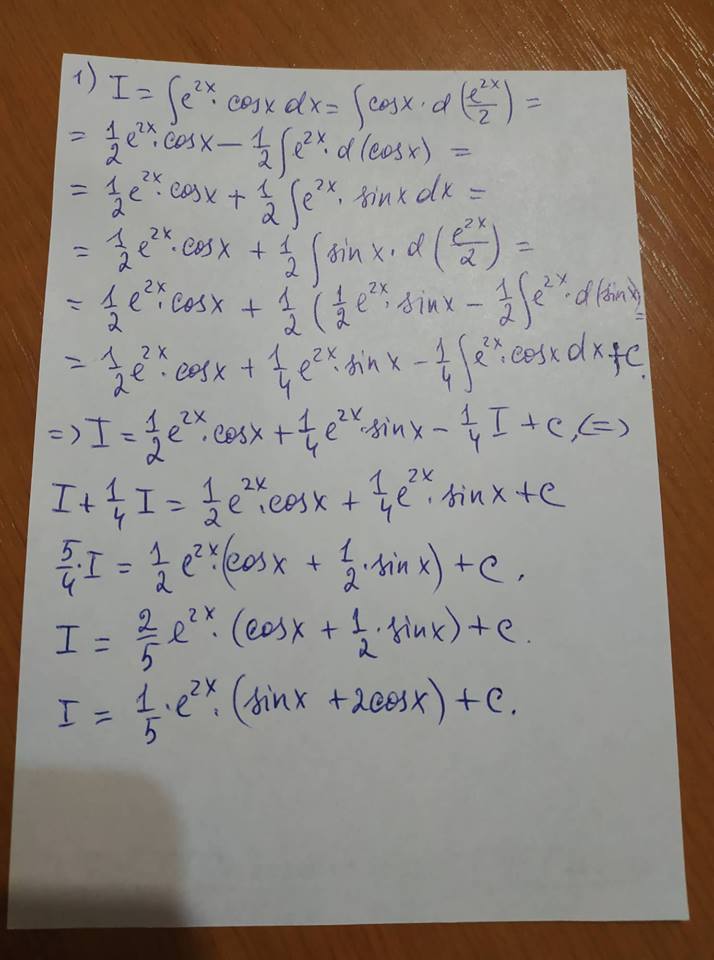 1) I = ∫e^{2x}·cosx dx = ∫cosx·d(e^{2x}/2) =
= 1/2 e^{2x}·cosx − 1/2 ∫e^{2x}·d(cosx) =
= 1/2 e^{2x}·cosx + 1/2 ∫e^{2x}·sinx dx =
= 1/2 e^{2x}·cosx + 1/2 ∫sinx·d(e^{2x}/2) =
= 1/2 e^{2x}·cosx + 1/2 (1/2 e^{2x}·sinx − 1/2 ∫e^{2x}·d(sinx) =
= 1/2 e^{2x}·cosx + 1/4 e^{2x}·sinx − 1/4 ∫e^{2x}·cosx dx + C.
=> I = 1/2 e^{2x}·cosx + 1/4 e^{2x}·sinx − 1/4 I + C, (=>
I + 1/4 I = 1/2 e^{2x}·cosx + 1/4 e^{2x}·sinx + C
5/4·I = 1/2 e^{2x}·(cosx + 1/2·sinx) + C,
I = 2/5 e^{2x}·(cosx + 1/2·sinx) + C.
I = 1/5·e^{2x}·(sinx + 2cosx) + C.